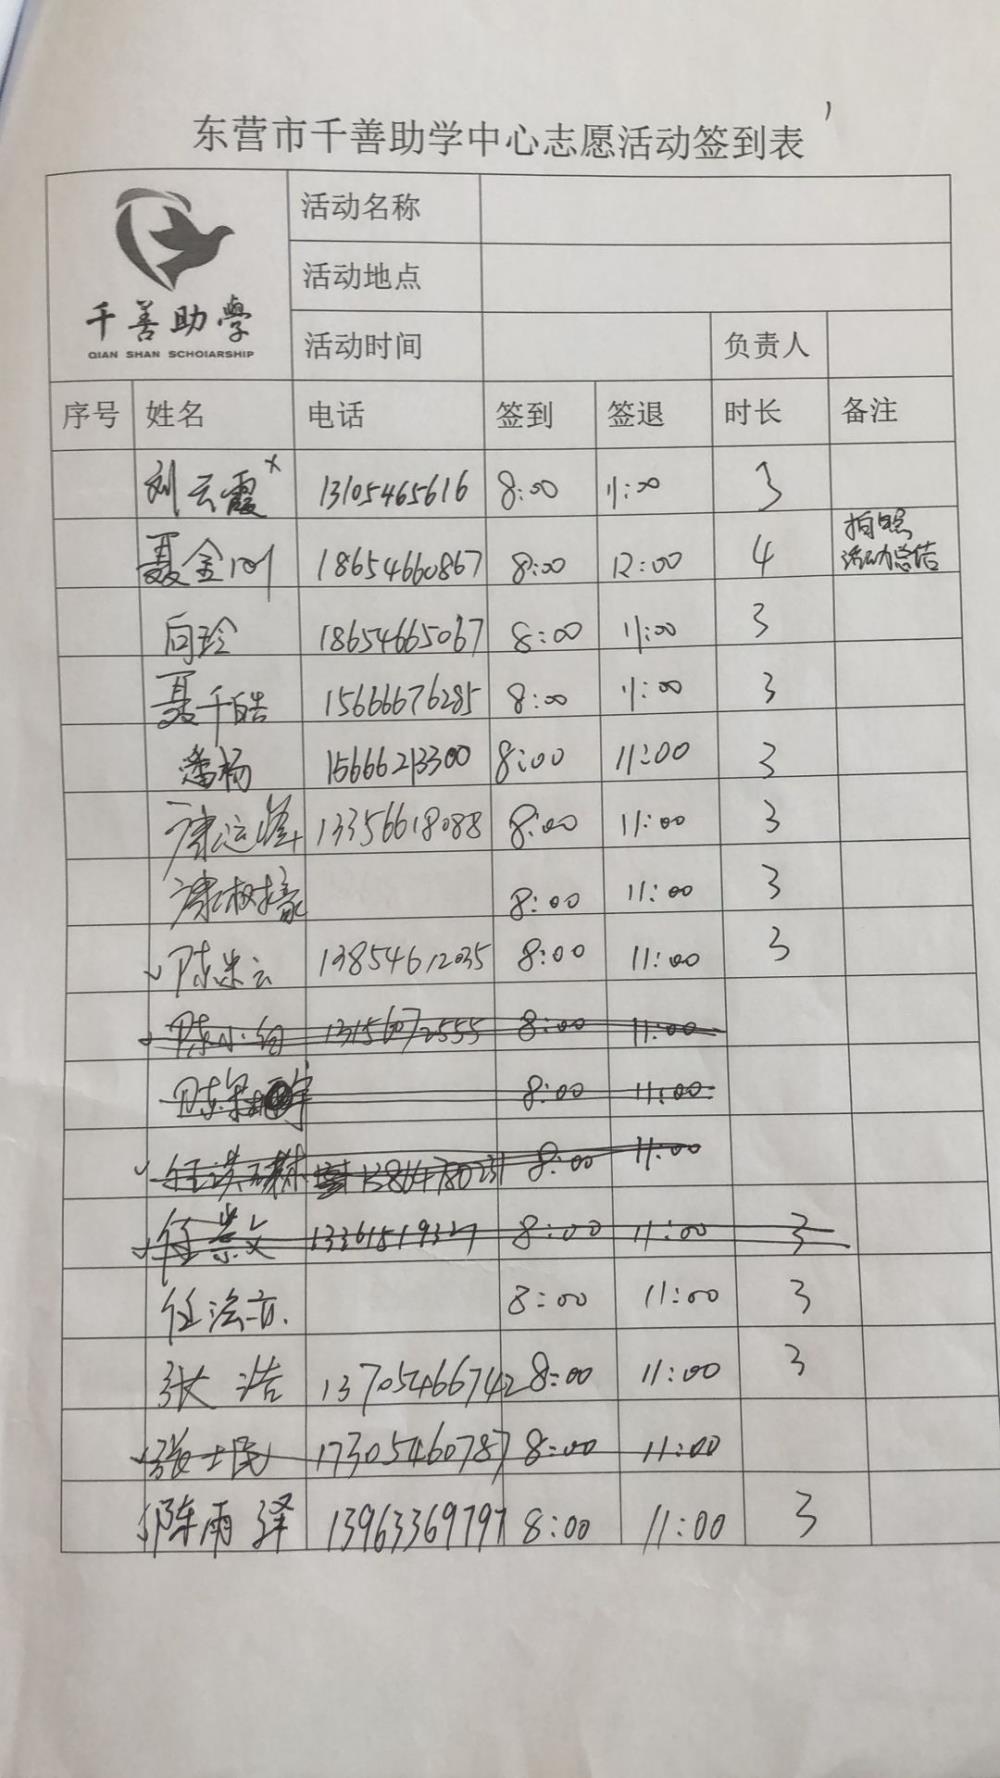 东营市千善助学中心志愿活动签到表
千善助學
QIAN SHAN SCHOIARSHIP
活动名称
活动地点
活动时间 负责人
序号 姓名 电话 签到 签退 时长 备注
刘云霞 13105465616 8:00 11:00 3
聂金川 18654660867 8:00 12:00 4 拍照 活动总结
向玲 18654665067 8:00 11:00 3
聂千皓 15666676285 8:00 11:00 3
潘杨 15666213300 8:00 11:00 3
谭运峰 13356618088 8:00 11:00 3
8:00 11:00 3
陈米云 13854612035 8:00 11:00 3
陈小 13156072555 8:00 11:00
8:00 11:00
8:00 11:00
任崇文 8:00 11:00 3
任法亦 8:00 11:00 3
张大浩 13705466742 8:00 11:00 3
张士民 17305460787 8:00 11:00
陈雨泽 13963369797 8:00 11:00 3